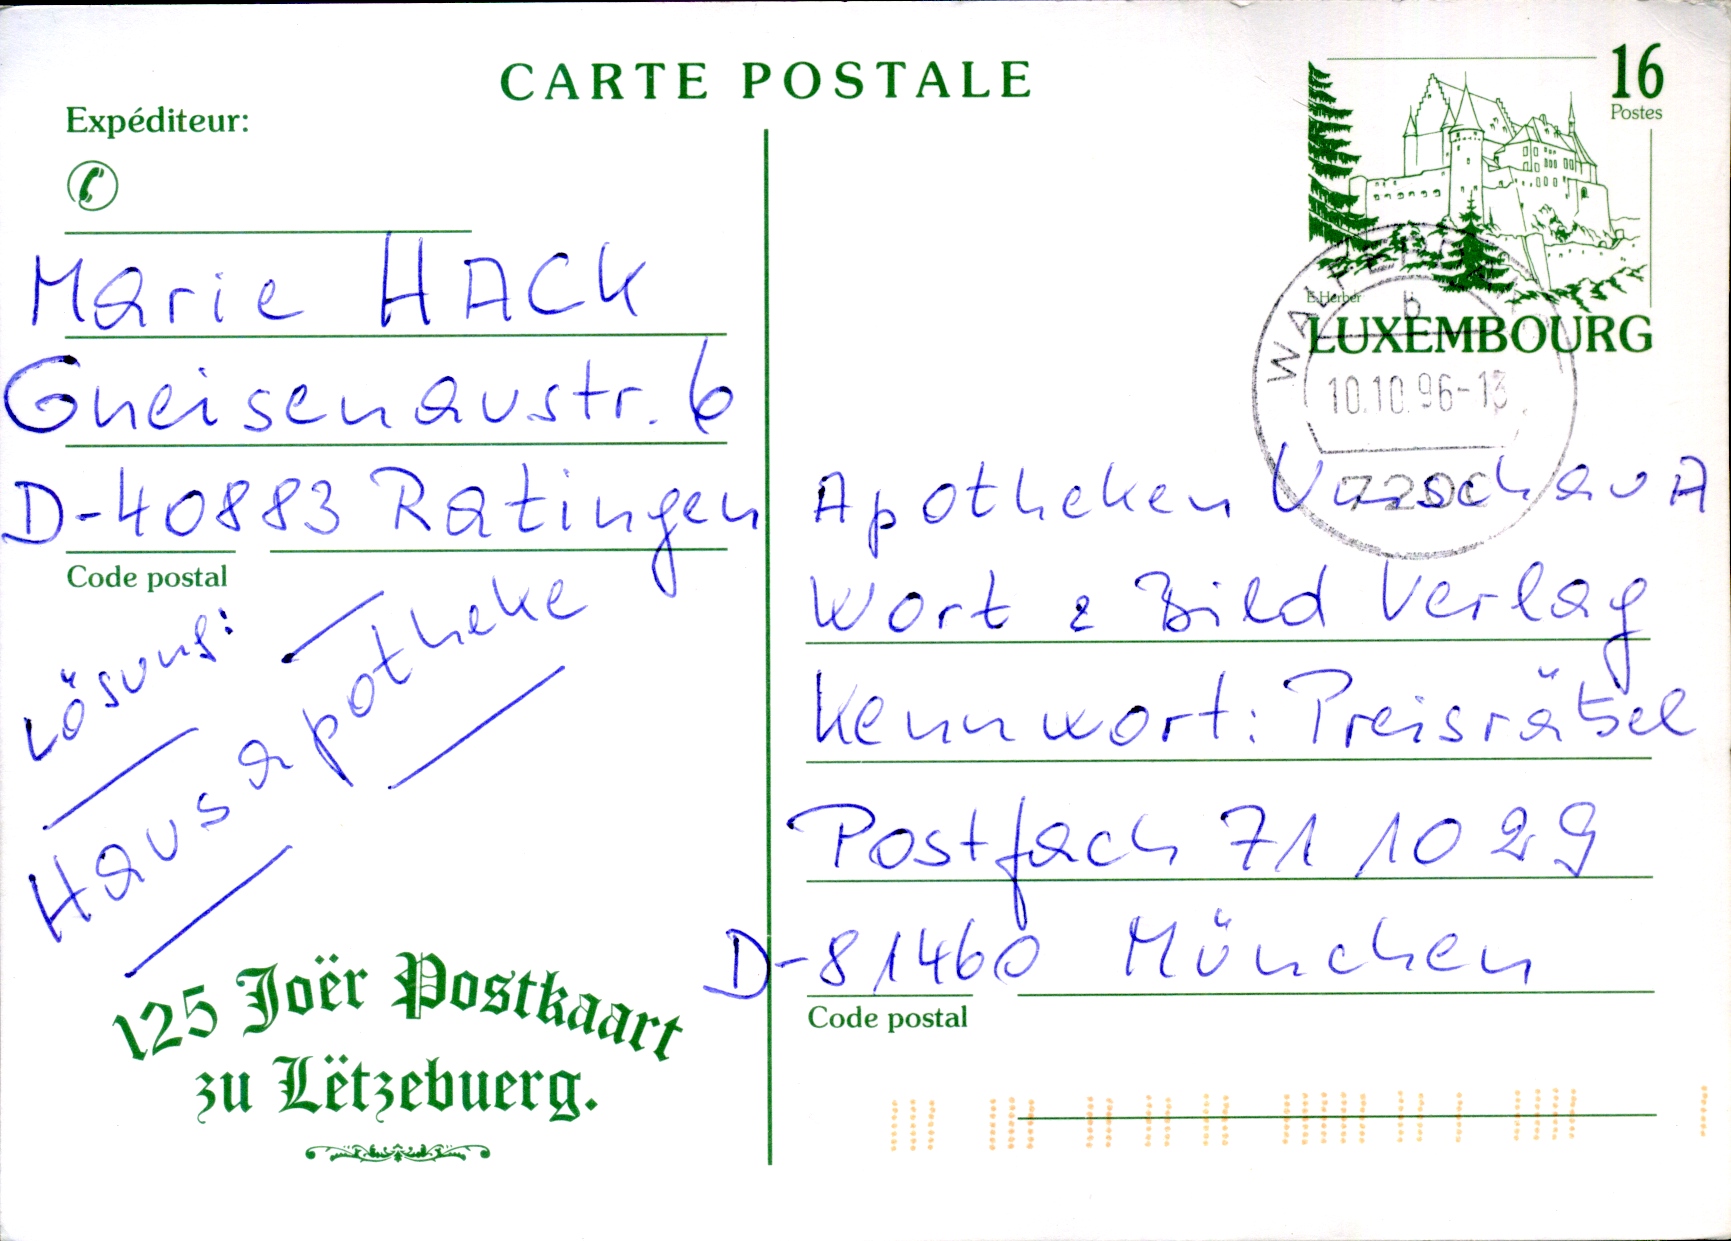 CARTE POSTALE
Expéditeur:
Marie HACK
Gneisenaustr. 6
D-40883 Ratingen
Code postal
Lösung:
Hausapotheke
125 Joër Postkaart
zu Lëtzebuerg.
16
Postes
E.Herber
LUXEMBOURG
b
10.10.96-13
7200
Apotheken Umschau A
Wort & Bild Verlag
Kennwort: Preisrätsel
Postfach 71 10 29
D-81460 München
Code postal